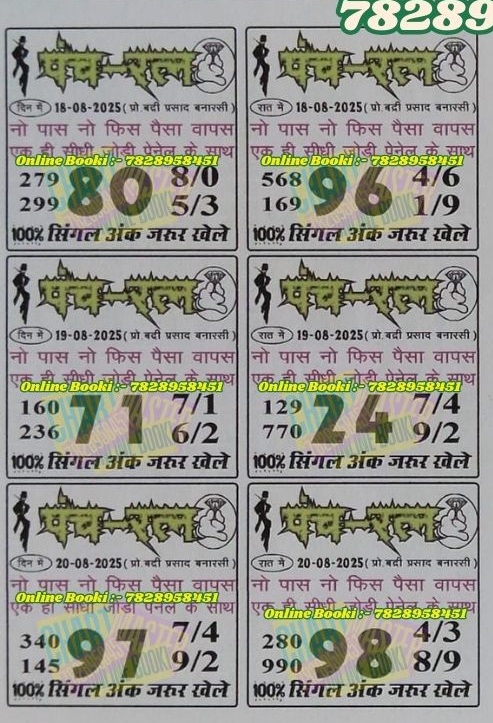 78289
पंच-रत्न
दिन में 18-08-2025 ( प्रो. बद्री प्रसाद बनारसी )
नो पास नो फिस पैसा वापस
एक ही सीधी जोड़ी पेनेल के साथ
Online Booki :- 7828958451
279 80 8/0
299 5/3
100% सिंगल अंक जरुर खेले
पंच-रत्न
रात में 18-08-2025 ( प्रो. बद्री प्रसाद बनारसी )
नो पास नो फिस पैसा वापस
एक ही सीधी जोड़ी पेनेल के साथ
Online Booki :- 7828958451
568 96 4/6
169 1/9
100% सिंगल अंक जरुर खेले
पंच-रत्न
दिन में 19-08-2025 ( प्रो. बद्री प्रसाद बनारसी )
नो पास नो फिस पैसा वापस
एक ही सीधी जोड़ी पेनेल के साथ
Online Booki :- 7828958451
160 71 7/1
236 6/2
100% सिंगल अंक जरुर खेले
पंच-रत्न
रात में 19-08-2025 ( प्रो. बद्री प्रसाद बनारसी )
नो पास नो फिस पैसा वापस
एक ही सीधी जोड़ी पेनेल के साथ
Online Booki :- 7828958451
129 24 7/4
770 9/2
100% सिंगल अंक जरुर खेले
पंच-रत्न
दिन में 20-08-2025 ( प्रो. बद्री प्रसाद बनारसी )
नो पास नो फिस पैसा वापस
Online Booki :- 7828958451
एक ही सीधी जोड़ी पेनेल के साथ
340 97 7/4
145 9/2
100% सिंगल अंक जरुर खेले
पंच-रत्न
रात में 20-08-2025 ( प्रो. बद्री प्रसाद बनारसी )
नो पास नो फिस पैसा वापस
एक ही सीधी जोड़ी पेनेल के साथ
Online Booki :- 7828958451
280 98 4/3
990 8/9
100% सिंगल अंक जरुर खेले